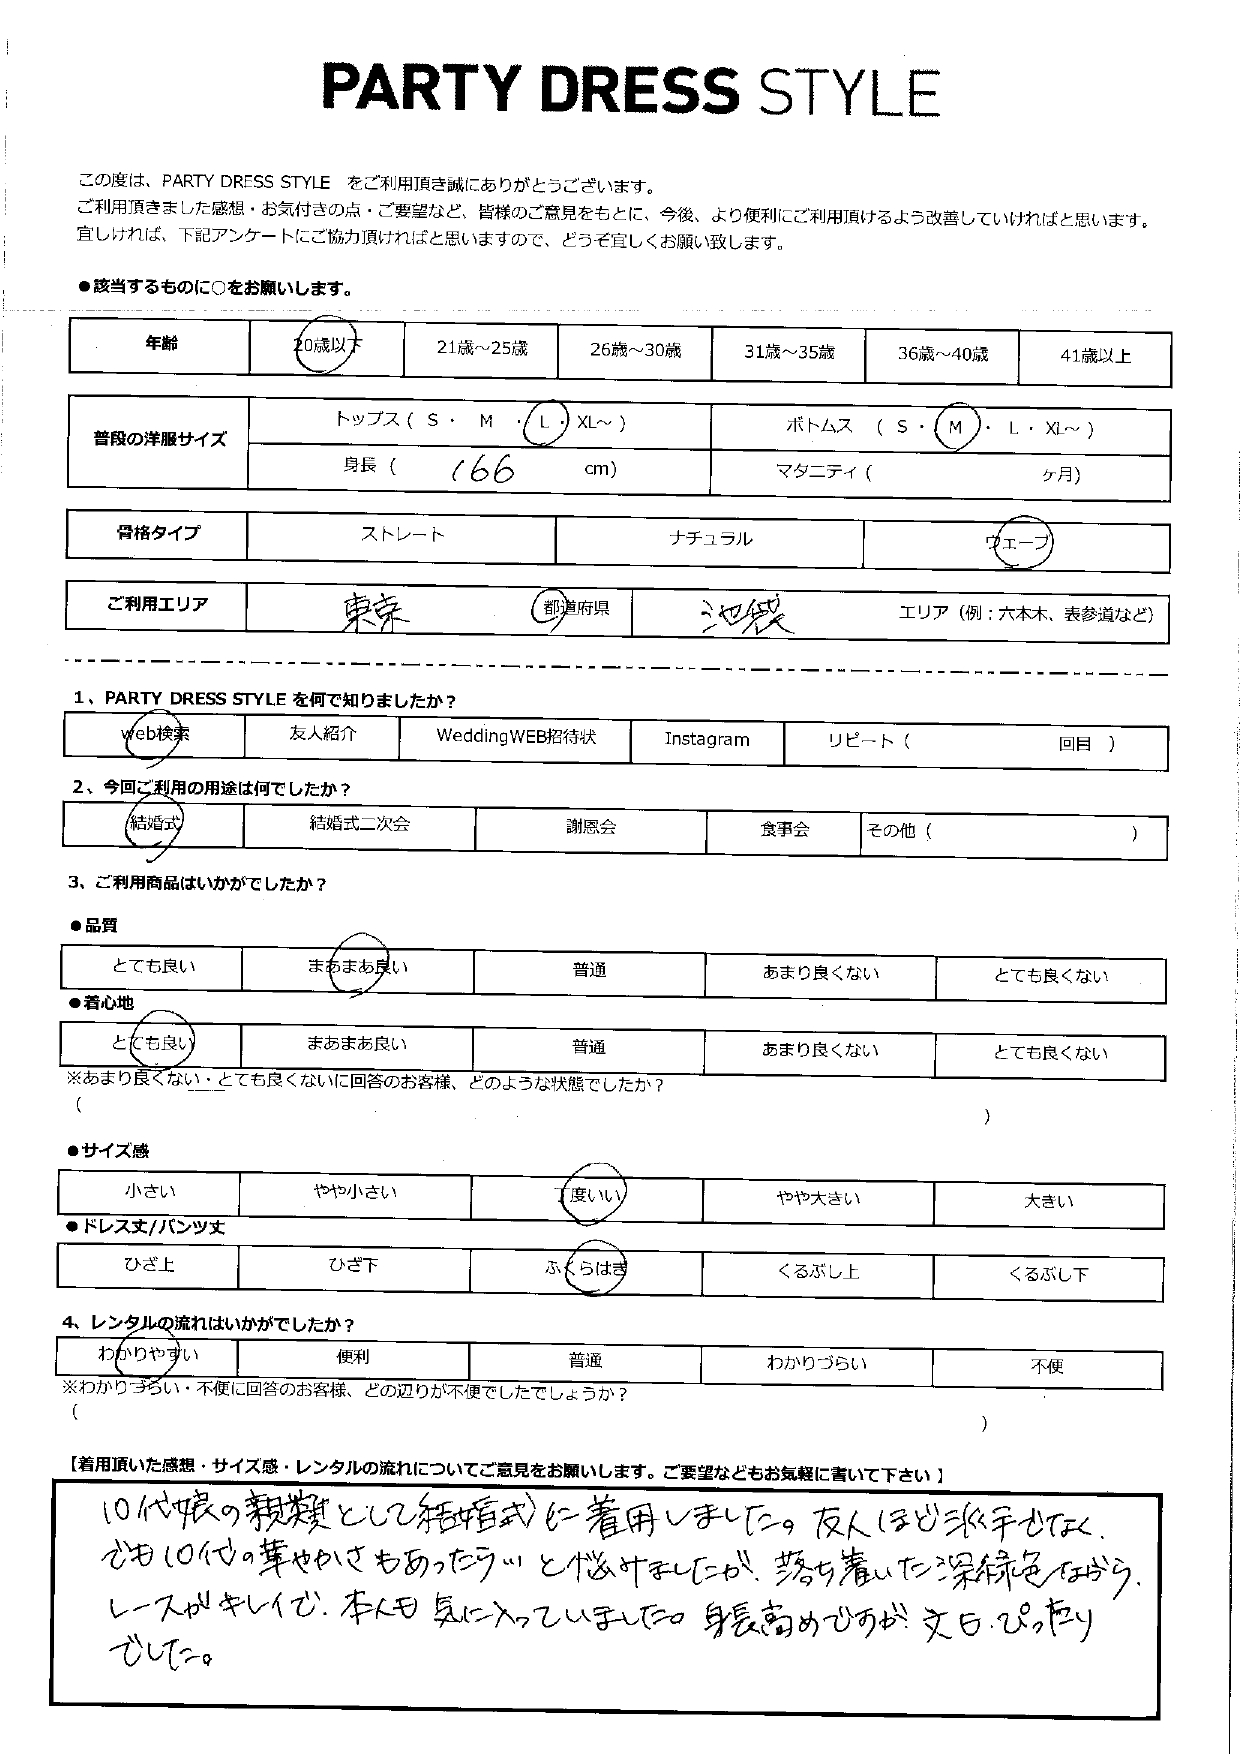 PARTY DRESS STYLE
この度は、PARTY DRESS STYLE をご利用頂き誠にありがとうございます。
ご利用頂きました感想・お気付きの点・ご要望など、皆様のご意見をもとに、今後、より便利にご利用頂けるよう改善していければと思います。
宜しければ、下記アンケートにご協力頂ければと思いますので、どうぞ宜しくお願い致します。
●該当するものに○をお願いします。
年齢 20歳以下 21歳～25歳 26歳～30歳 31歳～35歳 36歳～40歳 41歳以上
普段の洋服サイズ トップス ( S ・ M ・ L ・ XL～ ) ボトムス ( S ・ M ・ L ・ XL～ )
身長 ( 166 cm) マタニティ ( ヶ月)
骨格タイプ ストレート ナチュラル ウェーブ
ご利用エリア 東京 都道府県 池袋 エリア (例：六本木、表参道など)
1、PARTY DRESS STYLE を何で知りましたか？
web検索 友人紹介 WeddingWEB招待状 Instagram リピート ( 回目 )
2、今回ご利用の用途は何でしたか？
結婚式 結婚式二次会 謝恩会 食事会 その他 ( )
3、ご利用商品はいかがでしたか？
●品質
とても良い まあまあ良い 普通 あまり良くない とても良くない
●着心地
とても良い まあまあ良い 普通 あまり良くない とても良くない
※あまり良くない・とても良くないに回答のお客様、どのような状態でしたか？
( )
●サイズ感
小さい やや小さい 丁度いい やや大きい 大きい
●ドレス丈/パンツ丈
ひざ上 ひざ下 ふくらはぎ くるぶし上 くるぶし下
4、レンタルの流れはいかがでしたか？
わかりやすい 便利 普通 わかりづらい 不便
※わかりづらい・不便に回答のお客様、どの辺りが不便でしたでしょうか？
( )
【着用頂いた感想・サイズ感・レンタルの流れについてご意見をお願いします。ご要望などもお気軽に書いて下さい】
10代娘の親類として結婚式に着用しました。友人ほど派手でなく、
でも10代の華やかさもあったら…と悩みましたが、落ち着いた深緑色ながら、
レースがキレイで、本人も気に入っていました。身長高めですが、丈も、ぴったり
でした。